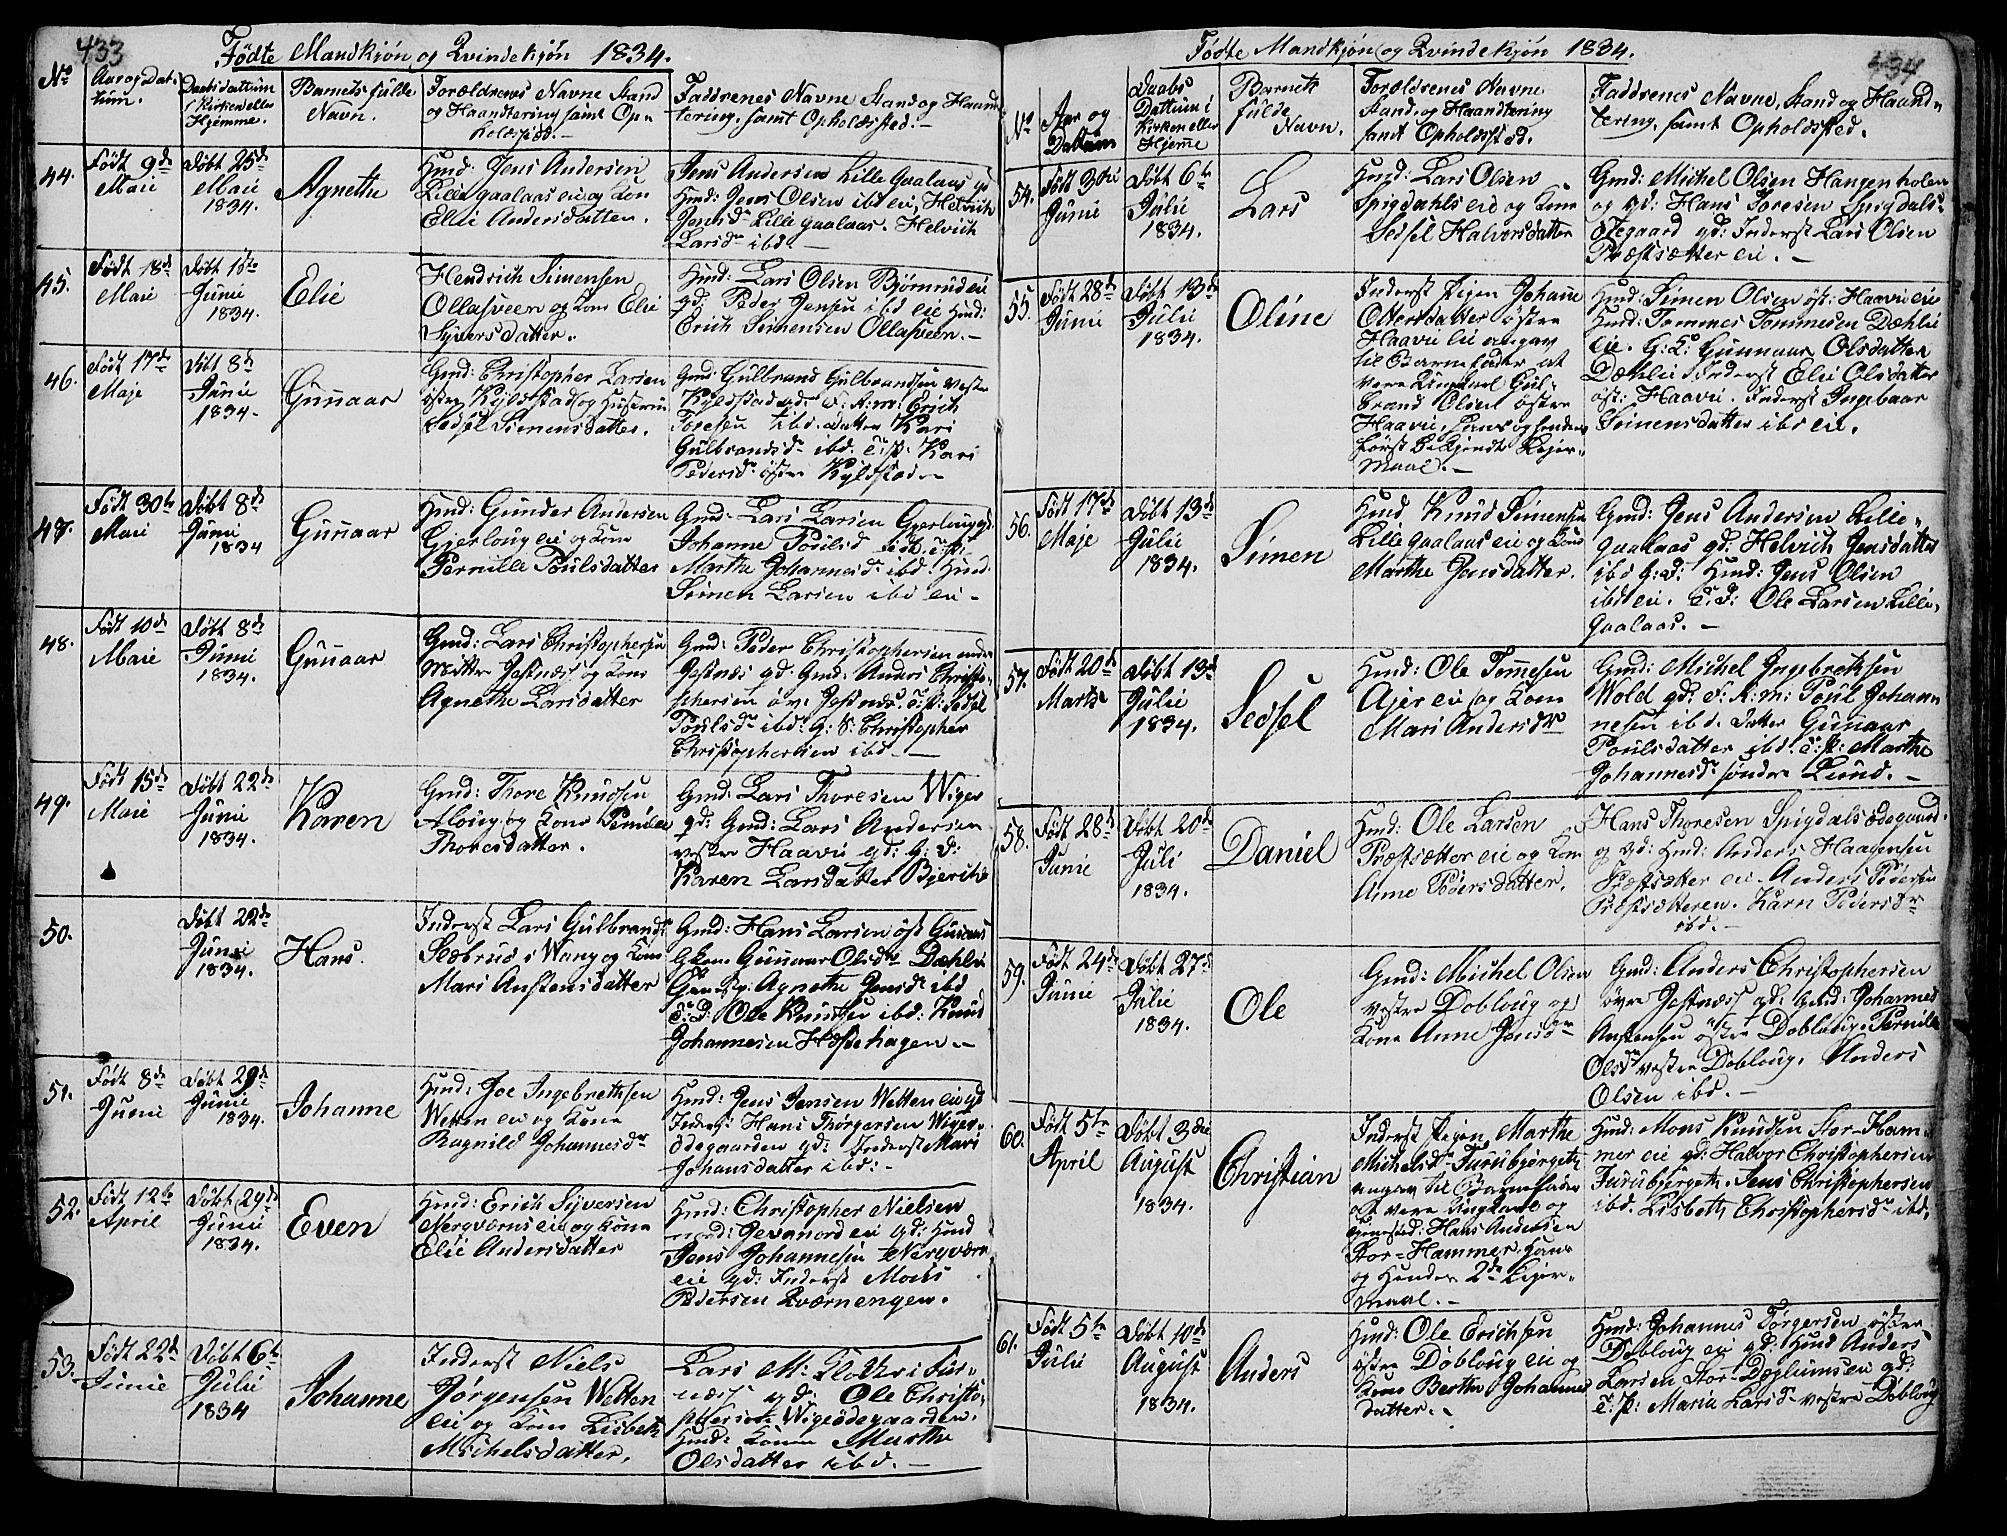 433
Fødte Mandkjøn og Qvindekjøn 1834.
No
Aar og Dat-
tum.
Daabsdattum
i Kirken eller
Hjemme.
Barnets fulde
Navn.
Forældrenes Navne Stand
og Haandtering samt Op-
holdssted.-
Faddrenes Navne Stand og Haand
tering, samt Opholdssted.-
44.
Født 9de
Maii
Døbt 25de
Maii
1834.
Agnethe
Huusd: Jens Andersen
Lille Gaalaas eie og Kone
Elie Andersdatter.
Jens Andersen Lille Gaalaas gd
Huusd: Jens Olsen ibd eie, Helvich
Jensd. Lille Gaalaas. Helvich
Larsdr ibd.-
45.
Født 18de
Maii
Døbt
Junii
1834.
Elie
Hendrich Simensen
Ollasveen og Kone Elie
Syversdatter.
Huusd: Lars Olsen Bjørnerud eie
gd: Peder Jensen ibd eie Huusd:
Erich Simensen Ollasveen.-
46.
Født 17de
Maje
Døbt 8de
Junii
1834.
Gunnaar
Gmd: Christopher Larsen
østre Kyldstad og Hustrue
Sedsel Simensdatter.
Gmd: Gulbrand Gulbrandsen vestre
Kyldstad gd: S: K: m: Erich
Toresen ibd. Datter Kari
Gulbrandsdr ibd. T: p: Kari
Pedersdr østre Kyldstad.-
47.
Født 30te
Maii
Døbt 8de
Junii
1834
Gunnaar
Huusd: Gunder Andersen
Gjerloug eie og Kone
Pernille Poulsdatter
Gmd: Lars Larsen Gjerloug gd.
Johanne Poulsd ibd. T: p:
Marthe Johannesdr ibd. Huusd:
Simen Larsen ibd eie-
48.
Født 10de
Maii
Døbt 8de
Junii
1834.
Gunnaar
Gmd: Lars Christophersen
nedtre Jestnæs og Kone
Agnethe Larsdatter
Gmd: Peder Christophersen nedre
Jestnæs gd. Gmd: Anders Christo-
phersen øv: Jestnæs. T: p: Sedsel
Poulsdr ibd: G: S: Christopher
Christophersen ibd.-
49.
Født 15de
Maii
Døbt 22de
Junii
1834.
Karen
Gmd: Thore Knudsen
Aloug og Kone Pernille
Thoresdatter.
Gmd: Lars Thoresen Wiger
gd: Gmd: Lars Andersen
vestre Haavie gd: G: D:
Karen Larsdatter Bjerche
50.
Døbt 22de
Junii
1834.
Hans.
Inderst Lars Gulbrands
Slæbrud i Wang og Kone
Mari Anstensdatter
Gmd: Hans Larsen øst
Gkone Gunnaar Olsdr Dæhlie
Agnethe Jensdr ibd
T: D: Ole Knudsen ibd: Knud
Johannesen Hæstehagen.-
51.
Født 8de
Junii
Døbt 29de
Junii
1834.
Johanne
Huusd: Joe Ingebrethsen
Wetten eie og Kone
Ragnild Johannesdr
Huusd: Jens Jensen Wetten eie gd
Inderst: Hans Thørgersen Wiger-
ødegaarden gd: Inderst Mari
Johansdatter ibd:-
52.
Født 12te
April
Døbt 29de
Junii
1834.
Even
Huusd: Erich Syversen
Nergværns eie og Kone
Elie Andersdatter
Huusd: Christopher Nielsen
nord: Jevanord eie gd: Huusd
Jens Johannesen Nergværn
eie gd: Inderst Mons
Pedersen Qværnengen.
53.
Født 22de
Junii
Døbt 6te
Julii
1834
Johanne
Inderst Niels
Jørgensen Wetten
eie og Kone Lisbeth
Michelsdatter.
Lars M: Kloth i Fur-
næss gd: Ole Christo-
phersen Wigeødegaarden.
Huusd: Kone Marthe
Olsdatter ibd.-
434
Fødte Mandkjøn og Qvindekjøn 1834.
No
Aar og
Dattum
Daabs
Dattum i
Kirken eller
Hjeme
Barnets
fulde
Navn.
Forældrenes Navne
Stand, og Haandtering
samt Opholdssted.
Faddrenes Navne, Stand og Haand-
tering, samt Opholdssted.
54.
Født 3die
Junii
Døbt 6te
Julii
1834.
Lars
Huusd: Lars Olsen
Spigdahls eie og Kone
Sedsel Halvorsdatter
Gmd: Michel Olsen Hangenholen
og gd: Hans Toresen Spigdals-
ødegaard gd: Inderst Lars Olsen
Præstsætter eie.-
55.
Født 28de
Junii
Døbt 13de
Julii
1834.
Oline
Inderst Pigen Johane
Ottersdatter østre
Haavie eie angav
til Barnefader at
være Ungkarl Gul-
brand Olsen østre
Haavie, hans og hendes
første bekjendte Lejer-
maal.-
Huusd: Simen Olsen øst: Haavie eie
Huusd: Tommes Tommesen Dæhlie
eie. G: K: Gunnaar Olsdatter
Dæhlie Inderst Elie Olsdatter
øst: Haavie. Inderst Ingebaar
Simensdatter ibd eie.
56.
Født 17de
Maje
Døbt 13de
Julii
1834.
Simen
Huusd Knud Simensen
Lille Gaalaas eie og Kone
Marthe Jensdatter.
Gmd: Jens Andersen Lille-
Gaalaas gd. Helvich Jensdatter
ibd G: D: Huusd: Jens Olsen
ibd eie. T: D: Ole Larsen Lille-
Gaalaas.-
57.
Født 20de
Marts
Døbt 13de
Julii
1834.
Sedsel
Huusd: Ole Tommesen
Ajer eie og Kone
Mari Andersdr
Gmd: Michel Ingebrethsen
Wold gd: S: K: m: Poul Johann
nesen ibd. Datter Gunnaar
Poulsdatter ibd. T: p: Marthe
Johannesdr søndre Lund.-
58.
Født 28de
Junii
Døbt 20de
Juli
1834.
Daniel
Huusd: Ole Larsen
Præstsætter eie og Kone
Anne Pedersdatter.
Hans Thoresen Spigdalsødegaard
og gd: Huusd: Anders Haagensen
Præstsætter eie. Anders Pedersen
Præstsætteren. Karn Pedersdr
ibd.-
59.
Født 24de
Junii
Døbt 27de
Julii
1834.
Ole
Gmd: Michel Olsen
vestre Dobloug og
Kone Anne Jensdr
Gmd: Anders Christophersen
øvre Jestnæss gd: Gmd: Johannes
Anstensen østre Dobloug. Pernille
Olsdr vestre Dobloug. Anders
Olsen ibd.-
60.
Født 5te
April
Døbt 3die
August
1834.
Christian
Inderst Pigen Marthe
Michelsdr Furubjerget
angav til Barnefader
at være Ungkarl og
Hans Andersen
Stor-Hammer, hans
og hendes 2de Lejer-
maal.-
Huusd: Mons Knudsen Stor-Ham-
mer eie gd: Halvor Christophersen
Furubjerget. Jens Christophersen
ibd. Lisbeth Christophersdr ibd.
61.
Født 5te
Julii
Døbt 10de
August
1834.
Anders
Huusd: Ole Erichsen
østre Dobloug eie og
Kone Berthe Johannes
datter.-
Huusd: Johannes Tørgersen østre
Dobloug eie gd: Huusd Anders
Larsen Stor-Dæglumseie gd:
T: p: Maria Larsdr vestre Dobloug